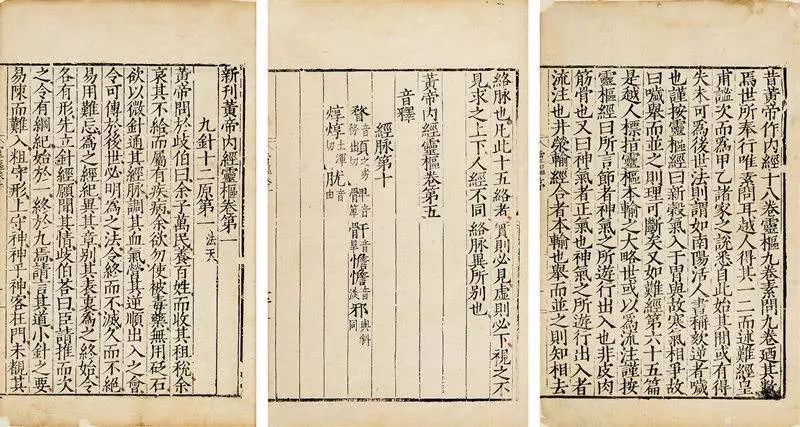 昔黃帝作內經十八卷靈樞九卷素問九卷廼其數
焉世所奉行唯素問耳越人得其一二而述難經皇
甫謐次而為甲乙諸家之說悉自此始其間或有得
失未可為後世法則謂如南陽活人書稱欬逆者噦
也謹按靈樞經曰新穀氣入于胃與故寒氣相爭故
曰噦舉而並之則理可斷矣又如難經第六十五篇
是越人標指靈樞本輸之大略世或以為流注謹按
靈樞經曰所言節者神氣之所遊行出入也非皮肉
筋骨也又曰神氣者正氣也神氣之所遊行出入者
流注也井滎輸經合者本輸也舉而並之則知相去
絡脉也凡此十五絡者實則必見虛則必下視之不
見求之上下人經不同絡脉異所別也
黃帝內經靈樞卷第五
音釋
經脉第十
骭音幹憺憺音淡邪音與斜同
焞焞
新刊黃帝內經靈樞卷第一
九針十二原第一 法天
黃帝問於歧伯曰余子萬民養百姓而收其租稅余
哀其不給而屬有疾病余欲勿使被毒藥無用砭石
欲以微針通其經脉調其血氣營其逆順出入之會
令可傳於後世必明為之法令終而不滅久而不絕
易用難忘為之經紀異其章別其表裏為之終始令
各有形先立針經願聞其情歧伯荅曰臣請推而次
之令有綱紀始於一終於九焉請言其道小針之要
易陳而難入粗守形上守神神乎神客在門未覩其